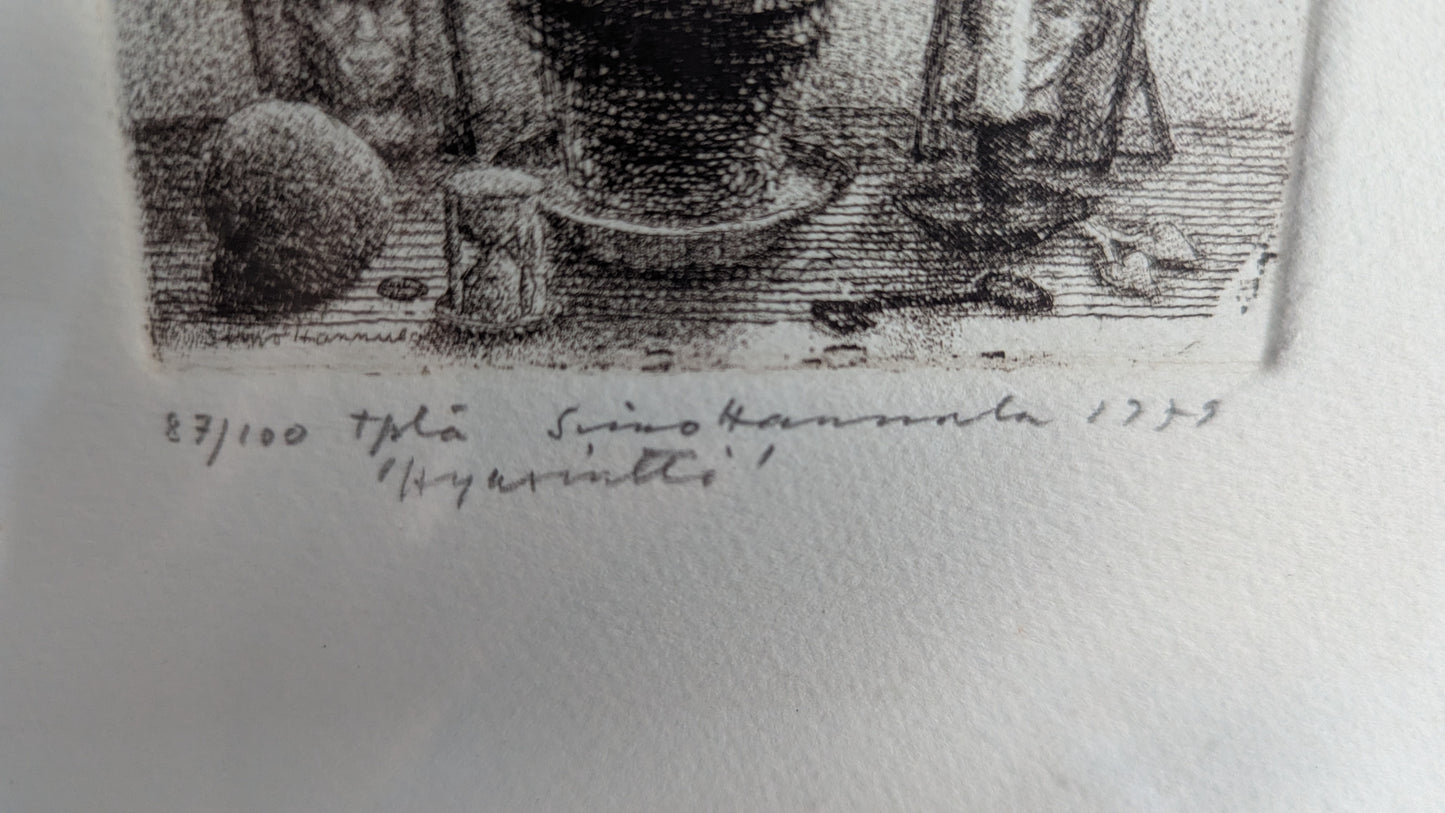 Simo Hannula
87/100 tplä Simo Hannula 1979
'Hyasintti'